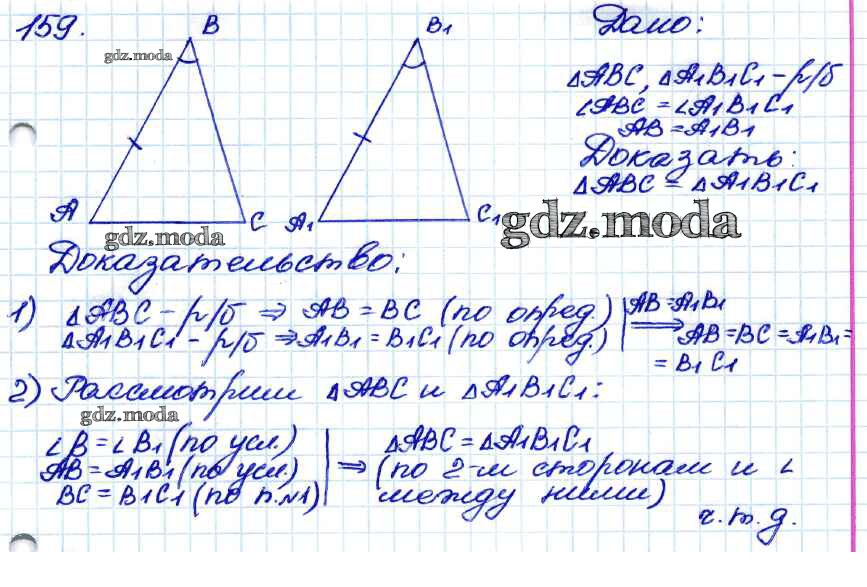 159.
B
B1
gdz.moda
A
C
A1
C1
gdz.moda
Дано:
△ABC, △A1B1C1 - р/б
∠ABC = ∠A1B1C1
AB = A1B1
Доказать:
△ABC = △A1B1C1
gdz.moda
Доказательство:
1) △ABC - р/б ⇒ AB = BC (по опред.)
△A1B1C1 - р/б ⇒ A1B1 = B1C1 (по опред.)
AB = A1B1
⇒ AB = BC = A1B1 =
= B1C1
2) Рассмотрим △ABC и △A1B1C1:
gdz.moda
∠B = ∠B1 (по усл.)
AB = A1B1 (по усл.)
BC = B1C1 (по п.№1)
⇒ △ABC = △A1B1C1
(по 2-м сторонам и ∠
между ними)
ч.т.д.